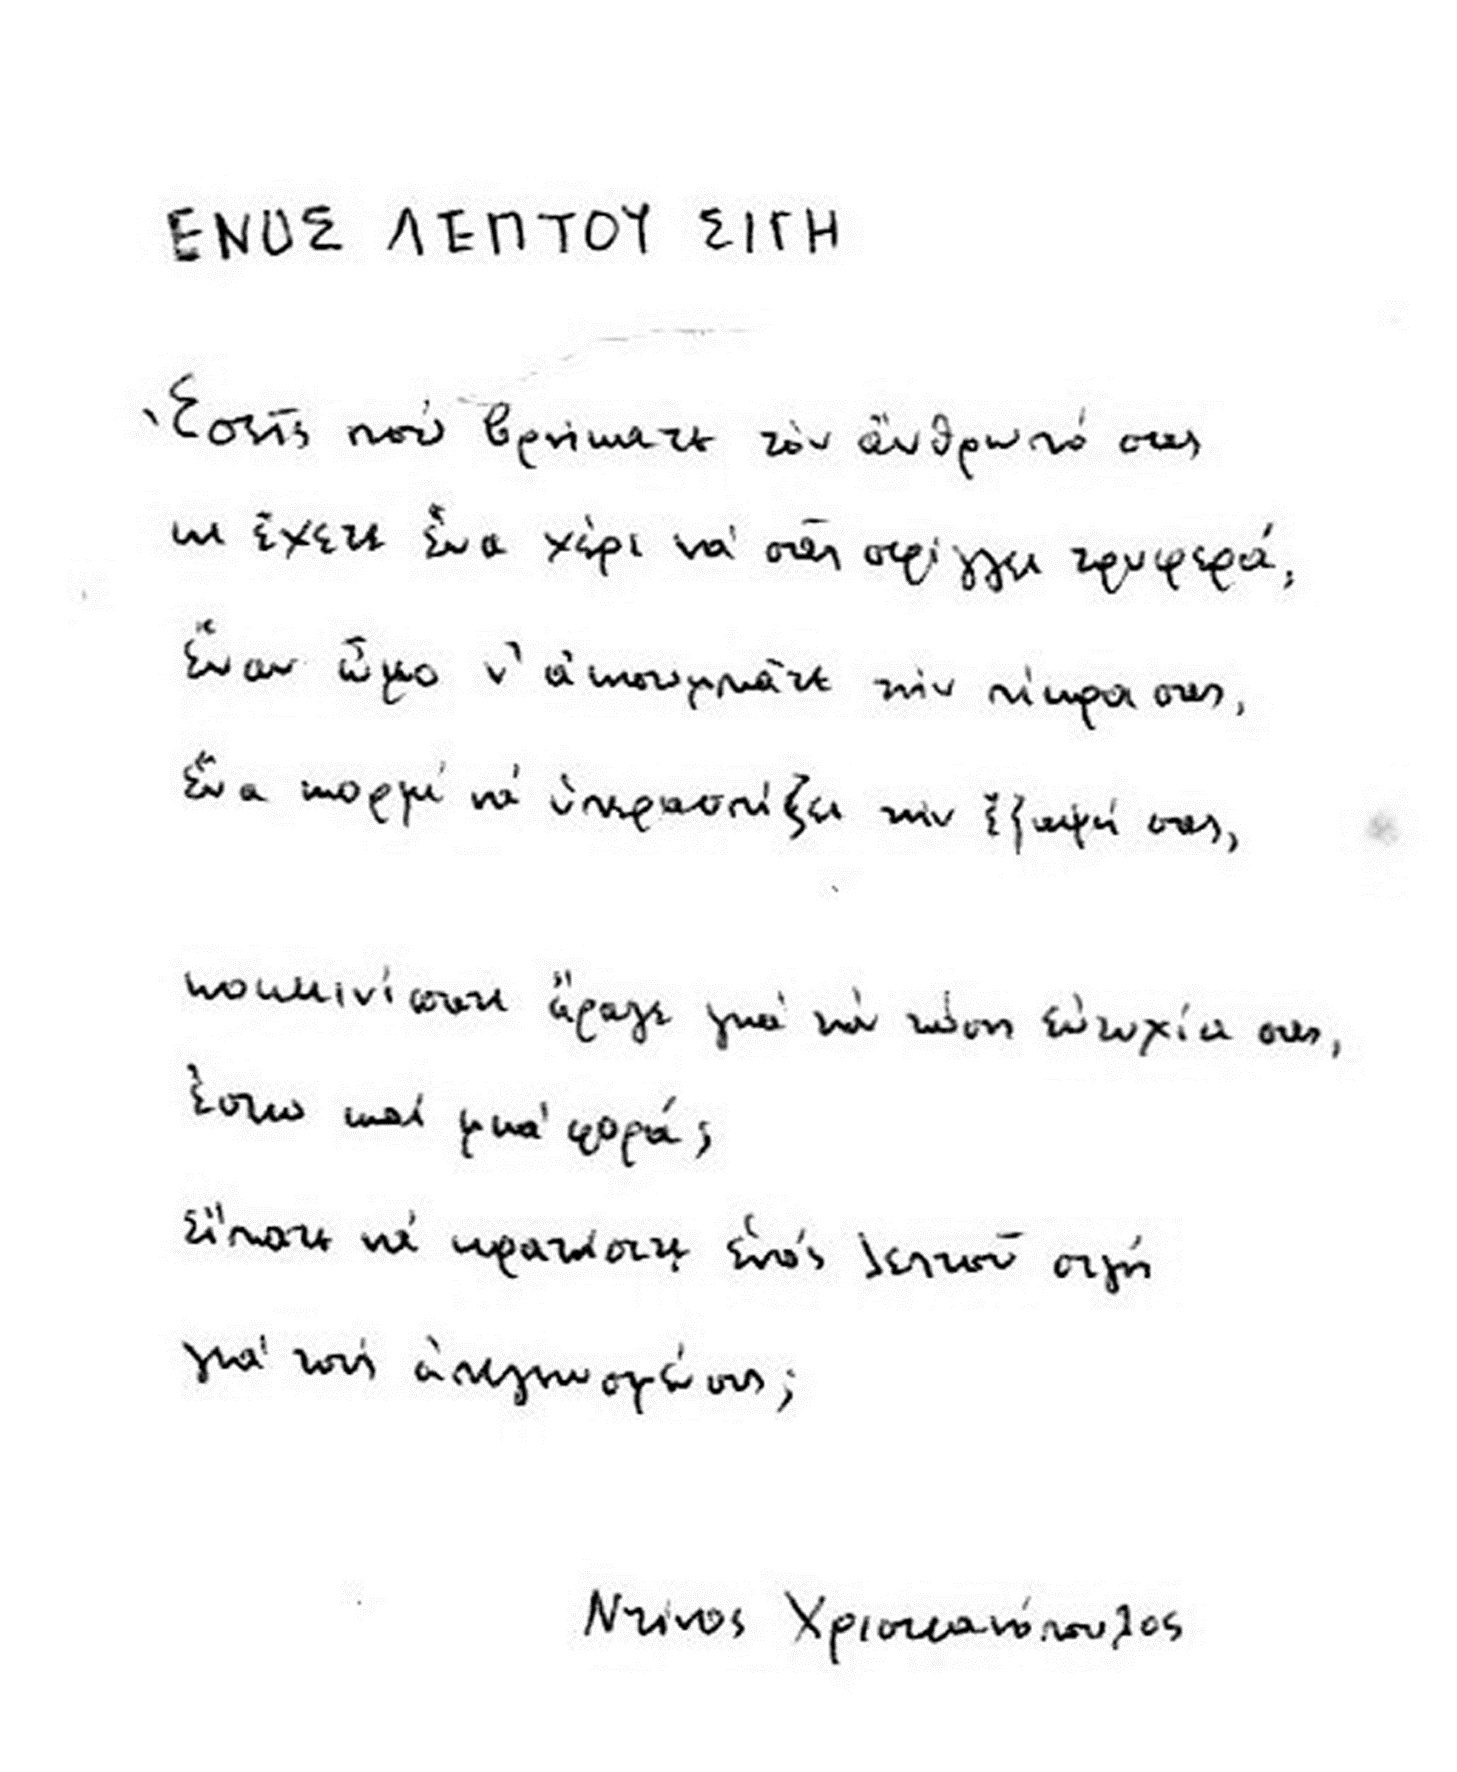 ΕΝΟΣ ΛΕΠΤΟΥ ΣΙΓΗ
Ἐσεῖς ποὺ βρήκατε τὸν ἄνθρωπό σας
κι ἔχετε ἕνα χέρι νὰ σᾶς σφίγγει τρυφερά,
ἕναν ὦμο ν' ἀκουμπᾶτε τὴν πίκρα σας,
ἕνα κορμὶ νὰ ὑπερασπίζει τὴν ἔξαψή σας,
κοκκινίσατε ἄραγε γιὰ τὴν τόση εὐτυχία σας,
ἔστω καὶ μιὰ φορά;
εἴπατε νὰ κρατήσετε ἑνὸς λεπτοῦ σιγὴ
γιὰ τοὺς ἀπεγνωσμένους;
Ντίνος Χριστιανόπουλος